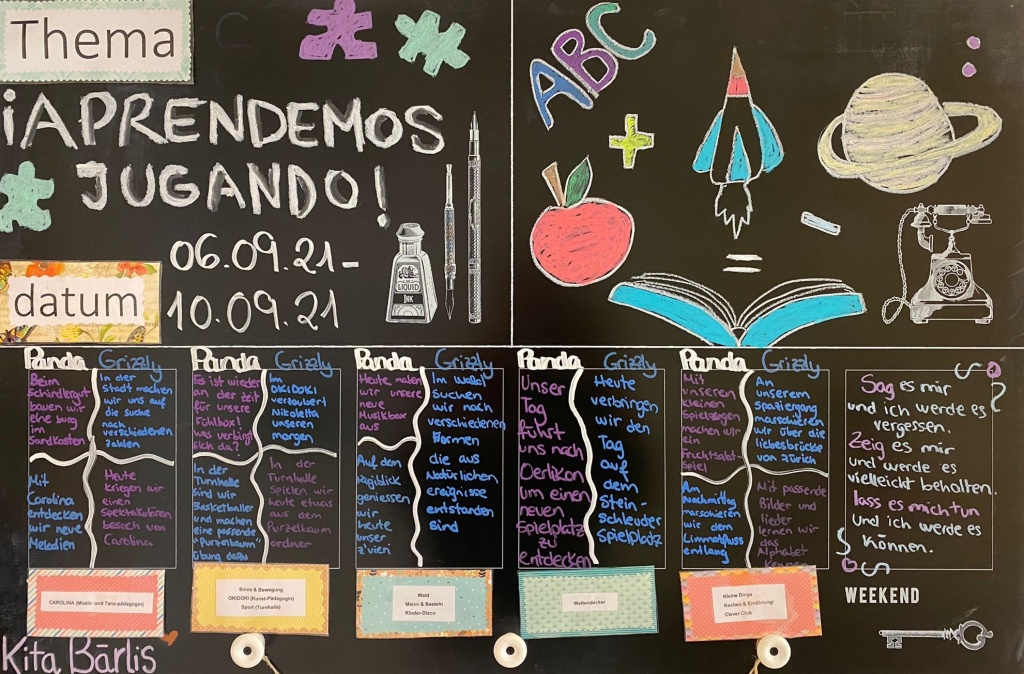 Thema
¡APRENDEMOS
JUGANDO!
06.09.21-
datum
10.09.21
ABC
+
=
LIQUID
INK
Panda Grizzly
Beim
Schündlergut
bauen wir
eine burg
im
Sandkasten
In der
Stadt machen
wir uns auf
die suche
nach
verschiedenen
Zahlen
Mit
Carolina
entdecken
wir neue
Melodien
Heute
kriegen wir
einen
Spektakulären
besuch von
Carolina
CAROLINA (Music- und Tanz-pädagogin)
Panda Grizzly
Es ist wieder
an der zeit
für unsere
Fühlbox!
Was verbirgt
sich da?
Im
OKIDOKI
verzaubert
Nikoletta
unseren
morgen
In der
Turnhalle
sind wir
Basketballer
und machen
eine passende
"Purzelbaum"
Übung dazu
In der
Turnhalle
Spielen wir
heute etwas
aus dem
Purzelbaum
ordner
Sinne & Bewegung
OKIDOKI (Kunst-Pädagogin)
Sport (Turnhalle)
Panda Grizzly
Heute malen
wir unsere
neue
Musikbox
aus
Auf den
Käferberg
geniessen
wir
heute
unser
z'vieri
Im Wald
Suchen
wir nach
verschiedenen
Formen
die aus
Natürlichen
ereignisse
entstanden
sind
Wald
Malen & Basteln
Kinder-Disco
Panda Grizzly
Unser
Tag
führt
uns nach
Oerlikon
um einen
neuen
Spielplatz
zu
entdecken
Heute
verbringen
wir den
Tag
auf
dem
Stein-
Schleuder
Spielplatz
Weltendecker
Panda Grizzly
Mit
unseren
kleinen
Spielzeugen
machen wir
ein
Fruchtsalat-
Spiel
An
unserem
Spaziergang
marschieren
wir über die
liebesbrücke
von Zürich
Am
Nachmittag
marschieren
wir dem
Limmatfluss
entlang
Mit passende
Bilder und
lieder
lernen wir
das
Alphabet
kennen
Kleine Dinge
Kochen & Ernährung/
Clever Club
Sag es mir
und ich werde es
vergessen.
Zeig es mir
und werde es
vielleicht behalten.
lass es mich tun
und ich werde es
können.
WEEKEND
Kita Bärlis